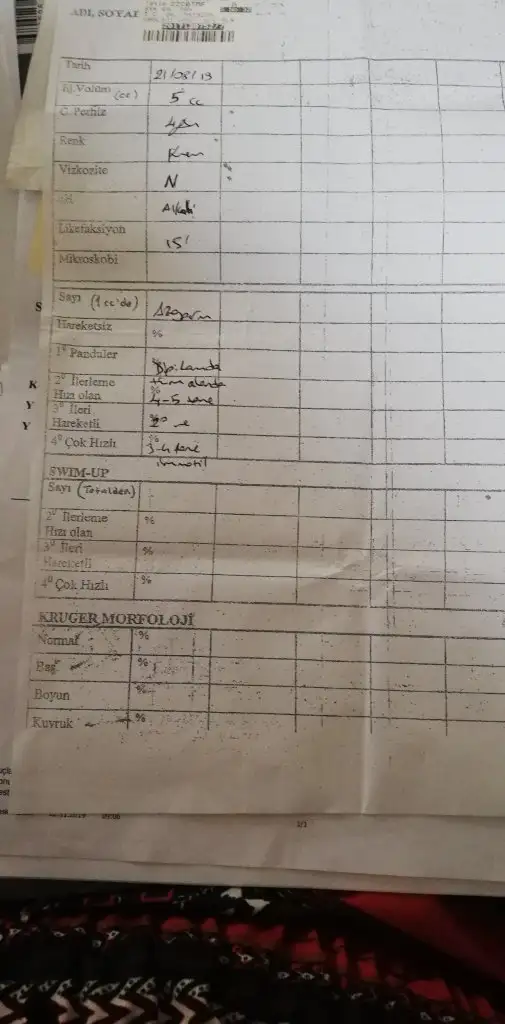 ADI, SOYAI
Tarih 21/08/19
Ej. Volüm (cc) 5 cc
C. Perhiz 4gün
Renk Krem
Vizkozite N
Alkali
Likefaksiyon 15'
Mikroskobi
Sayı (1 cc'de) Azospermi
Hareketsiz %
1⁰ Pandüler %
2⁰ İlerleme Hızı olan %
tüm alanda
4-5 tane
3⁰ İleri Hareketli %
4⁰ Çok Hızlı %
3-4 tane
immotil
SWIM-UP
Sayı (Totalden)
2⁰ İlerleme Hızı olan %
3⁰ İleri Hareketli %
4⁰ Çok Hızlı %
KRUGER MORFOLOJİ
Normal %
Baş %
Boyun %
Kuyruk %
S
K
Y
Y
1/1